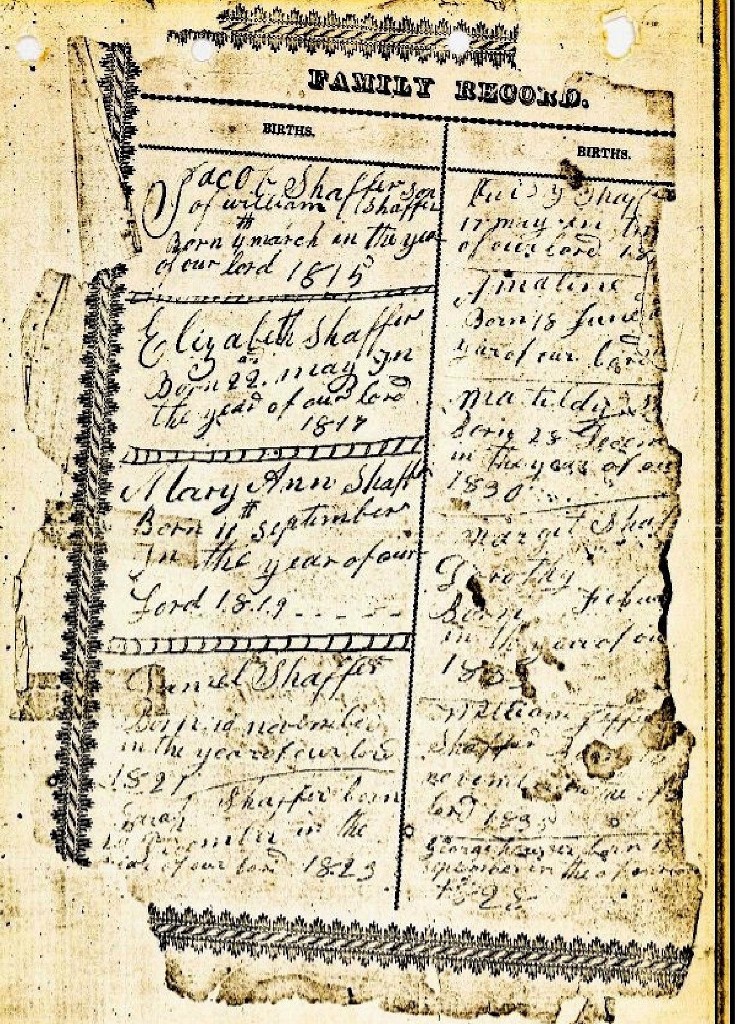 FAMILY RECORD.
BIRTHS.
Jacob Shaffer son
of william Shaffer
Born 4th march in the year
of our lord 1815
Elizabeth Shaffer
Born 22nd may In
the year of our lord
1817
Mary Ann Shaffer
Born 11th september
In the year of our
Lord 1819
Daniel Shaffer
Born 10 november
in the year of our lord
1821
Sarah Shaffer born
november in the
year of our lord 1823
BIRTHS.
Shaff
17 may in the
of our lord 18
Born 18 June
year of our lord
Matildy
Born 28 Decem
in the year of our
1830
Margit Shaf
Dorothy
Born Februa
in the year of ou
183
William
Shaffer
novem in the
lord 1835
George born 15
in the of our